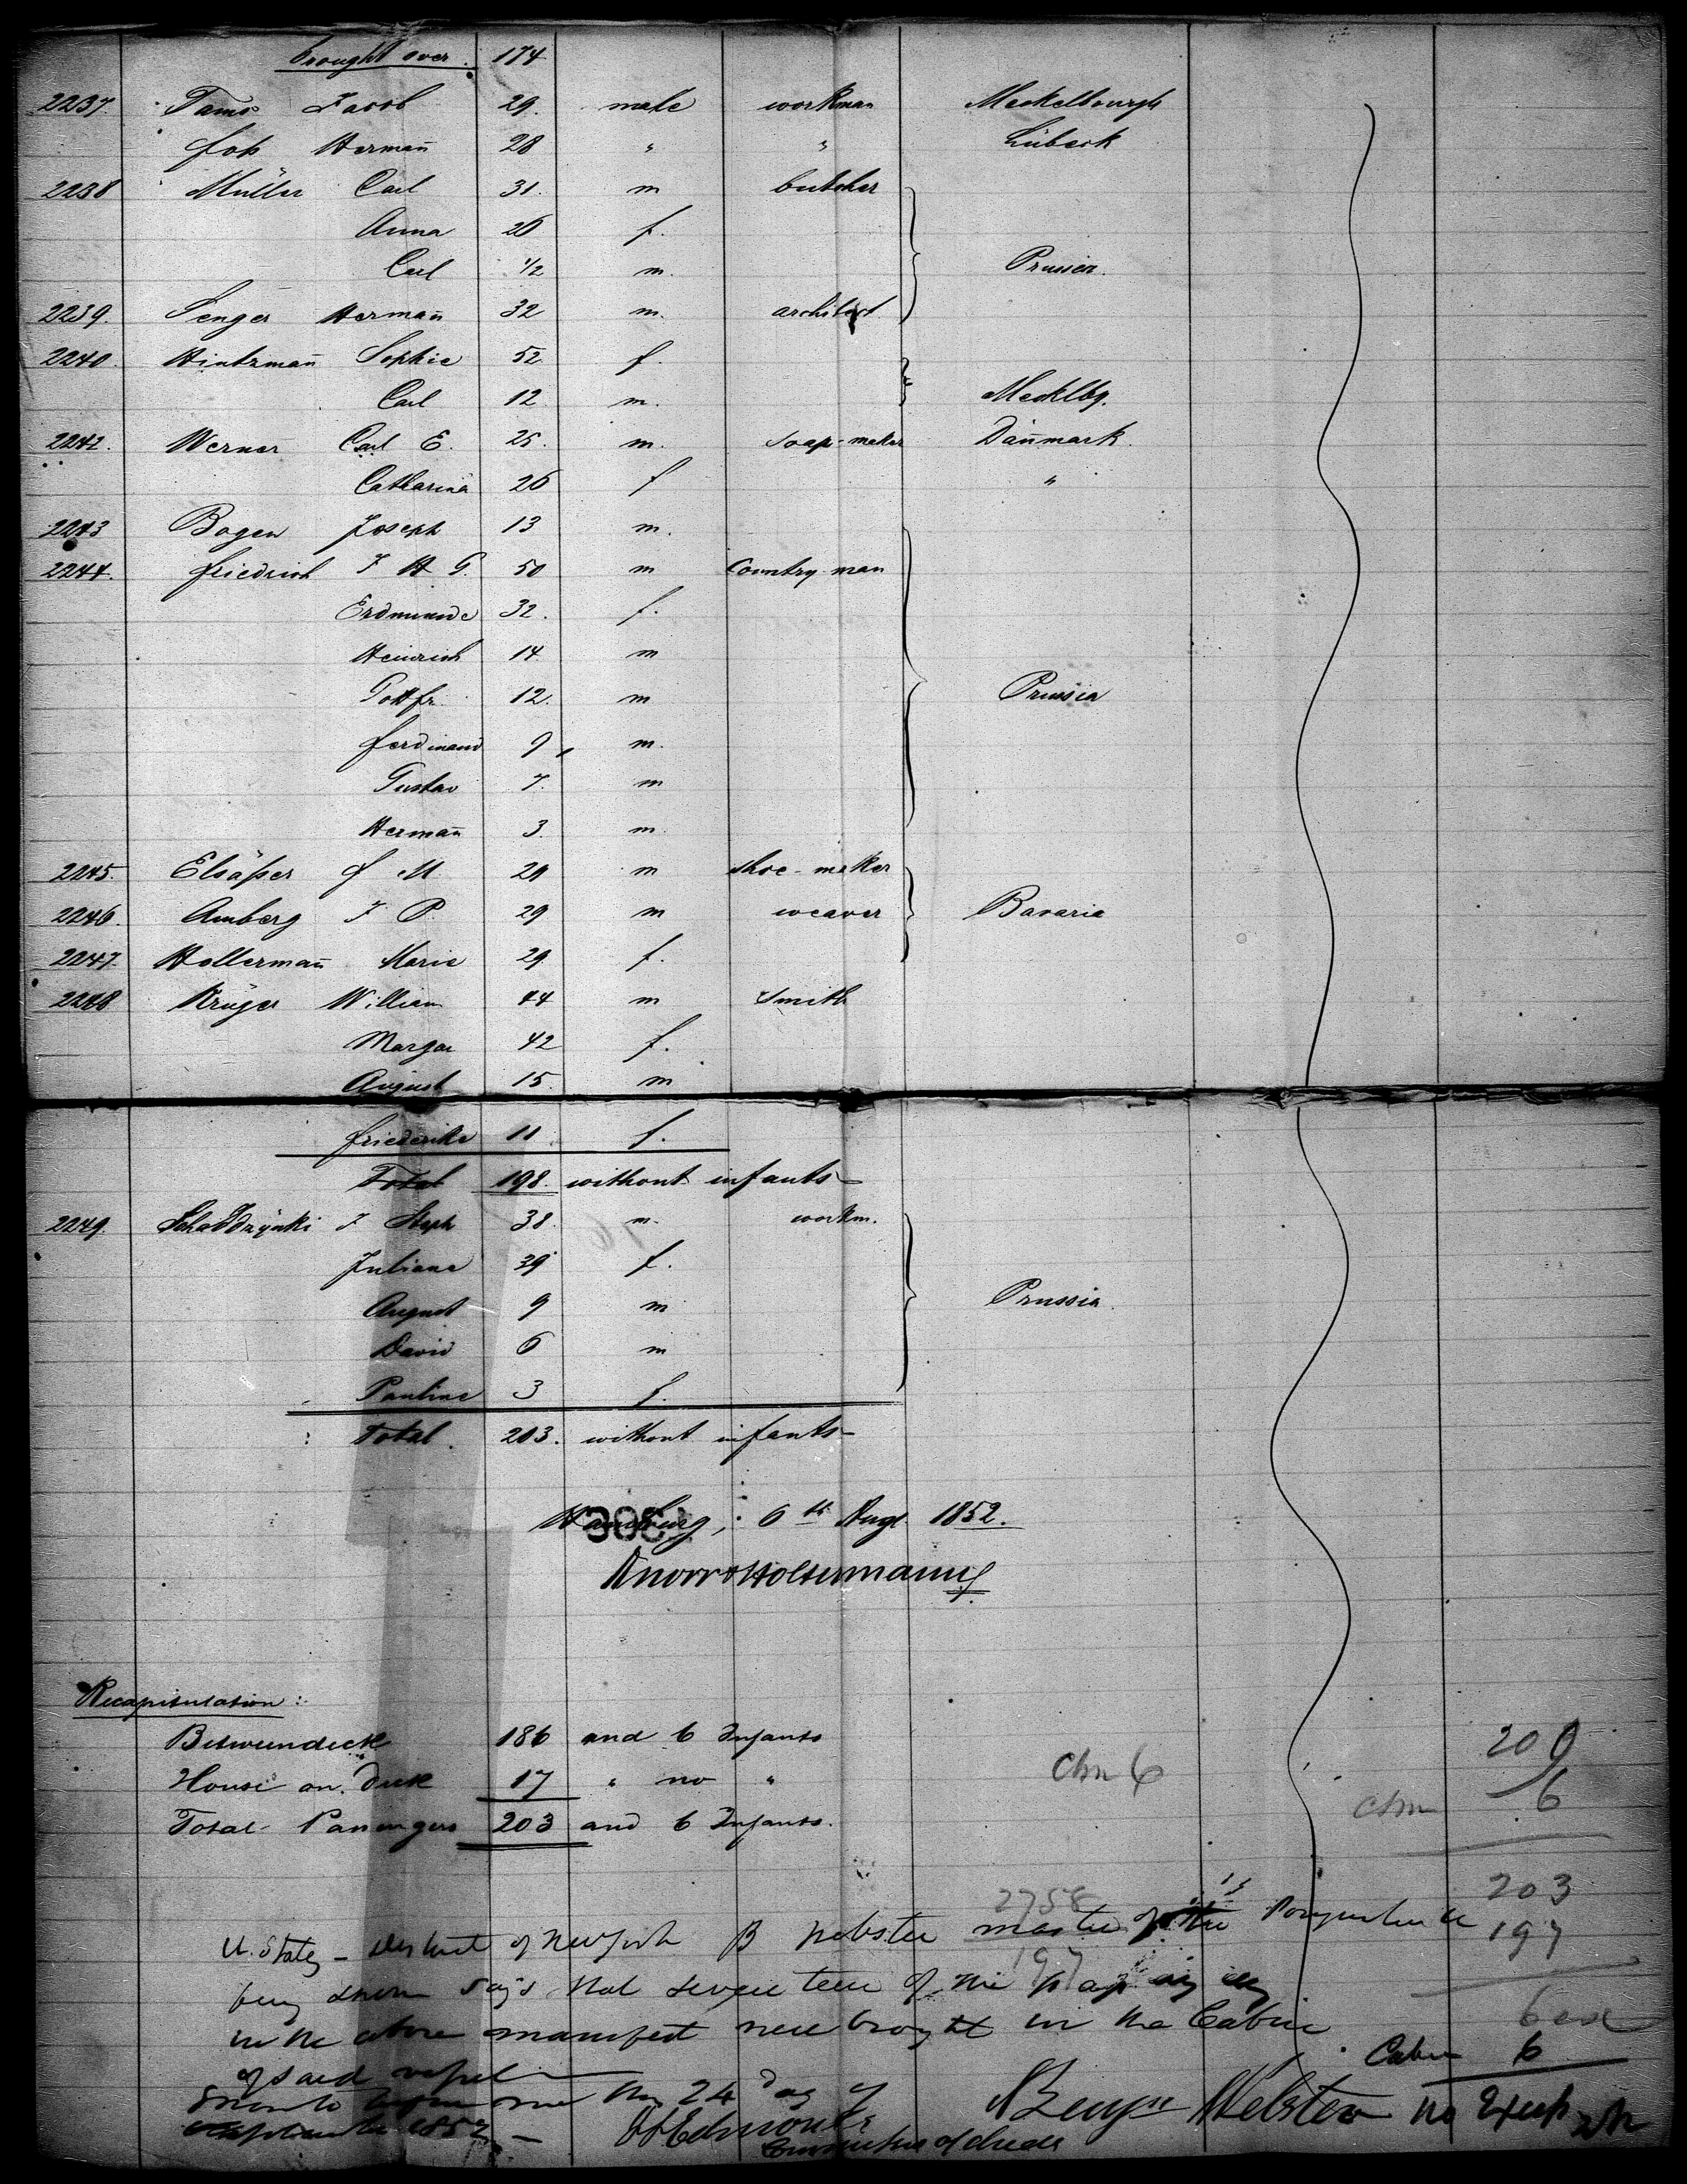 brought over. 174
2237. Tams Jacob 29. male workman Meckelbourgh
Joh Hermañ 28 " " Lübeck
2238 Müller Carl 31. m butcher
Anna 26 f.
Carl 1/2 m. Prussia.
2239. Senger Hermañ 32 m. architect
2240. Hintzmañ Sophie 52 f.
Carl 12 m. Mecklbg.
2242. Werner Carl E. 25. m. Soap-maker Dänmark.
Catharina 26 f "
2243 Bogen Joseph 13 m.
2244. Friedrich J H G. 50 m Country man
Erdmunde 32. f.
Heinrich 14 m
Gottfr. 12. m Prussia
Ferdinand 9 m.
Gustav 7. m
Hermañ 3. m.
2245. Elsäßer J M 29 m shoe-maker
2246. Amberg J P. 29 m weaver Bavaria
2247. Hollermañ Marie 29 f.
2248 Krüger William 44 m Smith
Margar 42 f.
August 15. m
Friederike 11 f.
Total 198. without infants
2249. J Steph 38. m. workm.
Juliane 39 f.
August 9 m Prussia.
David 6 m
Pauline 3 f.
Total. 203. without infants
Hamburg, 6th Augt 1852.
Knorr & Holtermann
Recapitulation:
Betweendeck 186 and 6 Infants
House on deck 17 " no "
Total Passengers 203 and 6 Infants.
Chn 6
209
Chn 6
203
197
2758
197
U. States - District of New York B Webster master of the
being sworn says that seventeen of the
in the above manifest were brought in the Cabin
of said vessel
Sworn to before me this 24 Day of
September 1852
Commissioner of deeds
Benjn Webster
Cabin 6
no